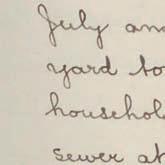 July an
yard to
househol
sewer at